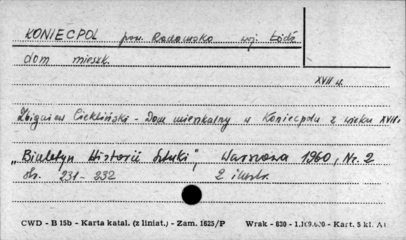 KONIECPOL pow. Radomsko woj. Łódź
dom mieszk.
XVII w.
Zbigniew Ciekliński - Dom mieszkalny w Koniecpolu z wieku XVII.
„Biuletyn Historii Sztuki", Warszawa 1960, Nr. 2
Str. 231 - 232 2 ilustr.
CWD - B 15b - Karta katal. (z liniat.) - Zam. 1625/P Wrak - 830 - Kart. 5 kl. A1